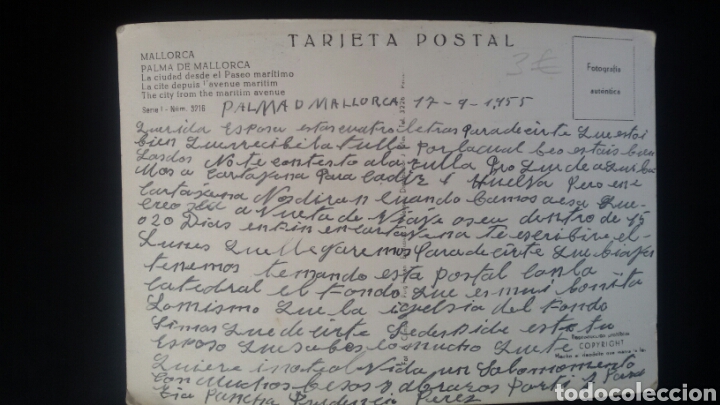 TARJETA POSTAL
MALLORCA
PALMA DE MALLORCA
La ciudad desde el Paseo marítimo
La cite depuis l'avenue maritim
The city from the maritim avenue
Serie I - Núm. 3716
3€
Fotografía
auténtica
PALMA D MALLORCA 17-9-1955
Querida Esposa estas cuatro letras para decirte Que estoi
bien Que recibi tu tulla por la cual beo estais bien
Las dos No te contesto a la tulla Pro Que de a Qui ba
Mos a Cartajena Para Cadiz I Huelva Pero en e
Cartajena Nos diran Cuando bamos a esa Que
Creo sea a Vueta de Viaje o sea dentro de 15
o 20 Dias en fin en Cartajena te escribire el
Lunes Que llegaremos Para decirte Que biaje
tenemos te mando esta postal con la
Catedral el Fondo Que es mui bonita
Lo mismo Que la iguelsia del Fondo
Sin mas Que decirte Se despide este tu
Esposo Que sabes lo mucho Que te
Quiere i no te olvida un Solo momento
Con muchos besos y abrazos Para ti y Para
tia Pancha Prudencio Perez
Reproducción prohibida
COPYRIGHT
todocoleccion.net